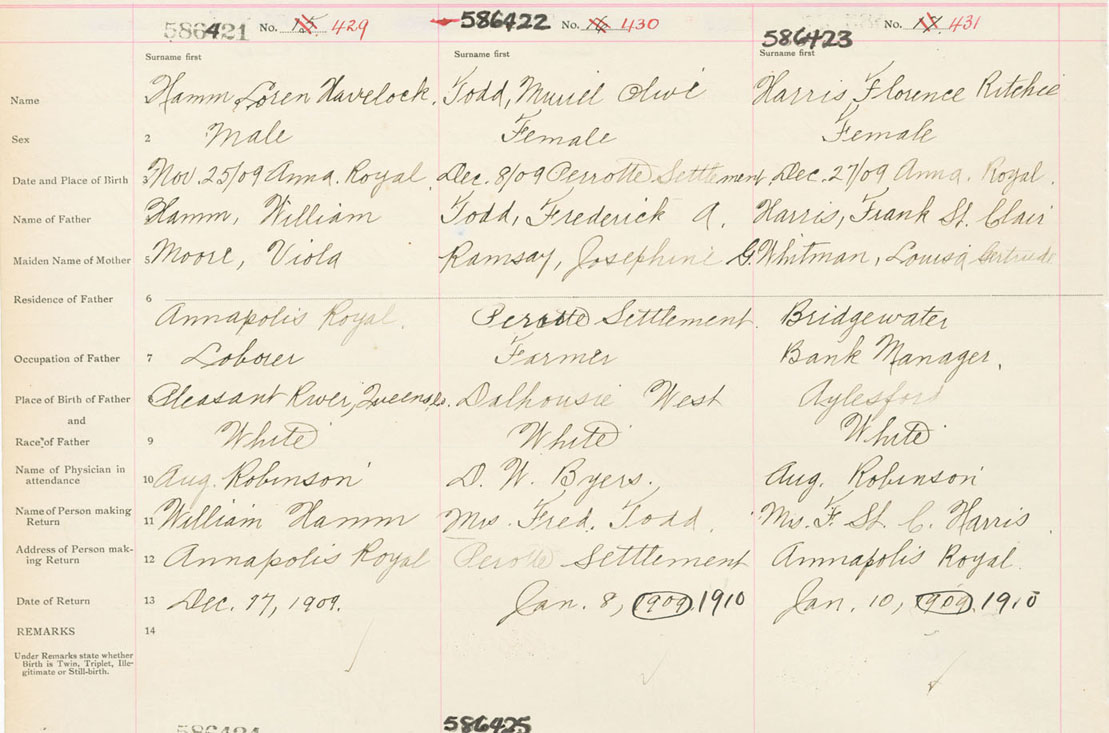 586421 No. 15. 429 586422 No. 16 430 586423 No. 17. 431
Surname first Surname first Surname first
Name Hamm Loren Havelock. Todd, Muriel Olive Harris Florence Ritchie
Sex 2 Male Female Female
Date and Place of Birth 3 Nov 25/09 Anna. Royal Dec. 8/09 Perrotte Settlement. Dec. 27/09 Anna. Royal.
Name of Father Hamm, William Todd, Frederick A. Harris, Frank St. Clair
Maiden Name of Mother 5 Moore, Viola Ramsay, Josephine G. Whitman, Louisa Gertrude
Residence of Father 6
Annapolis Royal. Perrotte Settlement. Bridgewater
Occupation of Father 7 Laborer Farmer Bank Manager.
Place of Birth of Father Pleasant River, Queens Co. Dalhousie West Aylesford
and
Race of Father 9 White White White
Name of Physician in
attendance 10 Aug. Robinson D. W. Byers. Aug. Robinson
Name of Person making
Return 11 William Hamm Mrs. Fred. Todd. Mrs. F. St. C. Harris
Address of Person mak-
ing Return 12 Annapolis Royal Perotte Settlement Annapolis Royal.
Date of Return 13 Dec. 17, 1909. Jan. 8, 1909 1910 Jan. 10, 1909 1910
REMARKS 14
Under Remarks state whether
Birth is Twin, Triplet, Ille-
gitimate or Still-birth.
586424 586425